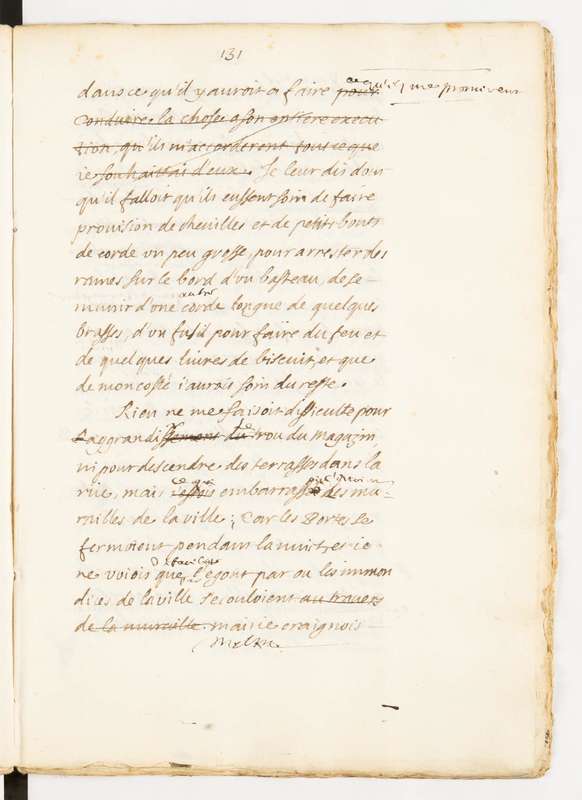 131
dans ce qu'il y auroit a faire pour ce qu'ils me promirent
conduire la chose a son entiere execu
tion qu'ils m'accorderent tout ce que
ie souhaittai d'eux. Je leur dis donc
qu'il falloit qu'ils eussent soin de faire
provision de chevilles et de petits bouts
de corde un peu grosse, pour arrester des
rames sur le bord d'un basteau, de se
munir d'une autre corde longue de quelques
brasses, d'un fusil pour faire du feu et
de quelques liures de biscuit, et que
de mon costé i'aurois soin du reste.
Rien ne me faisoit difficulté pour
l'aggrandissement du trou du magazin
ni pour descendre des terrasses dans la
rüe, mais i'estois embarrassé des mu-
railles de la ville; Car les Portes se
fermoient pendant la nuit, et ie
ne voiois que l'egout par ou les immon
dices de la ville s'ecouloient au travers
de la muraille. mais ie craignois